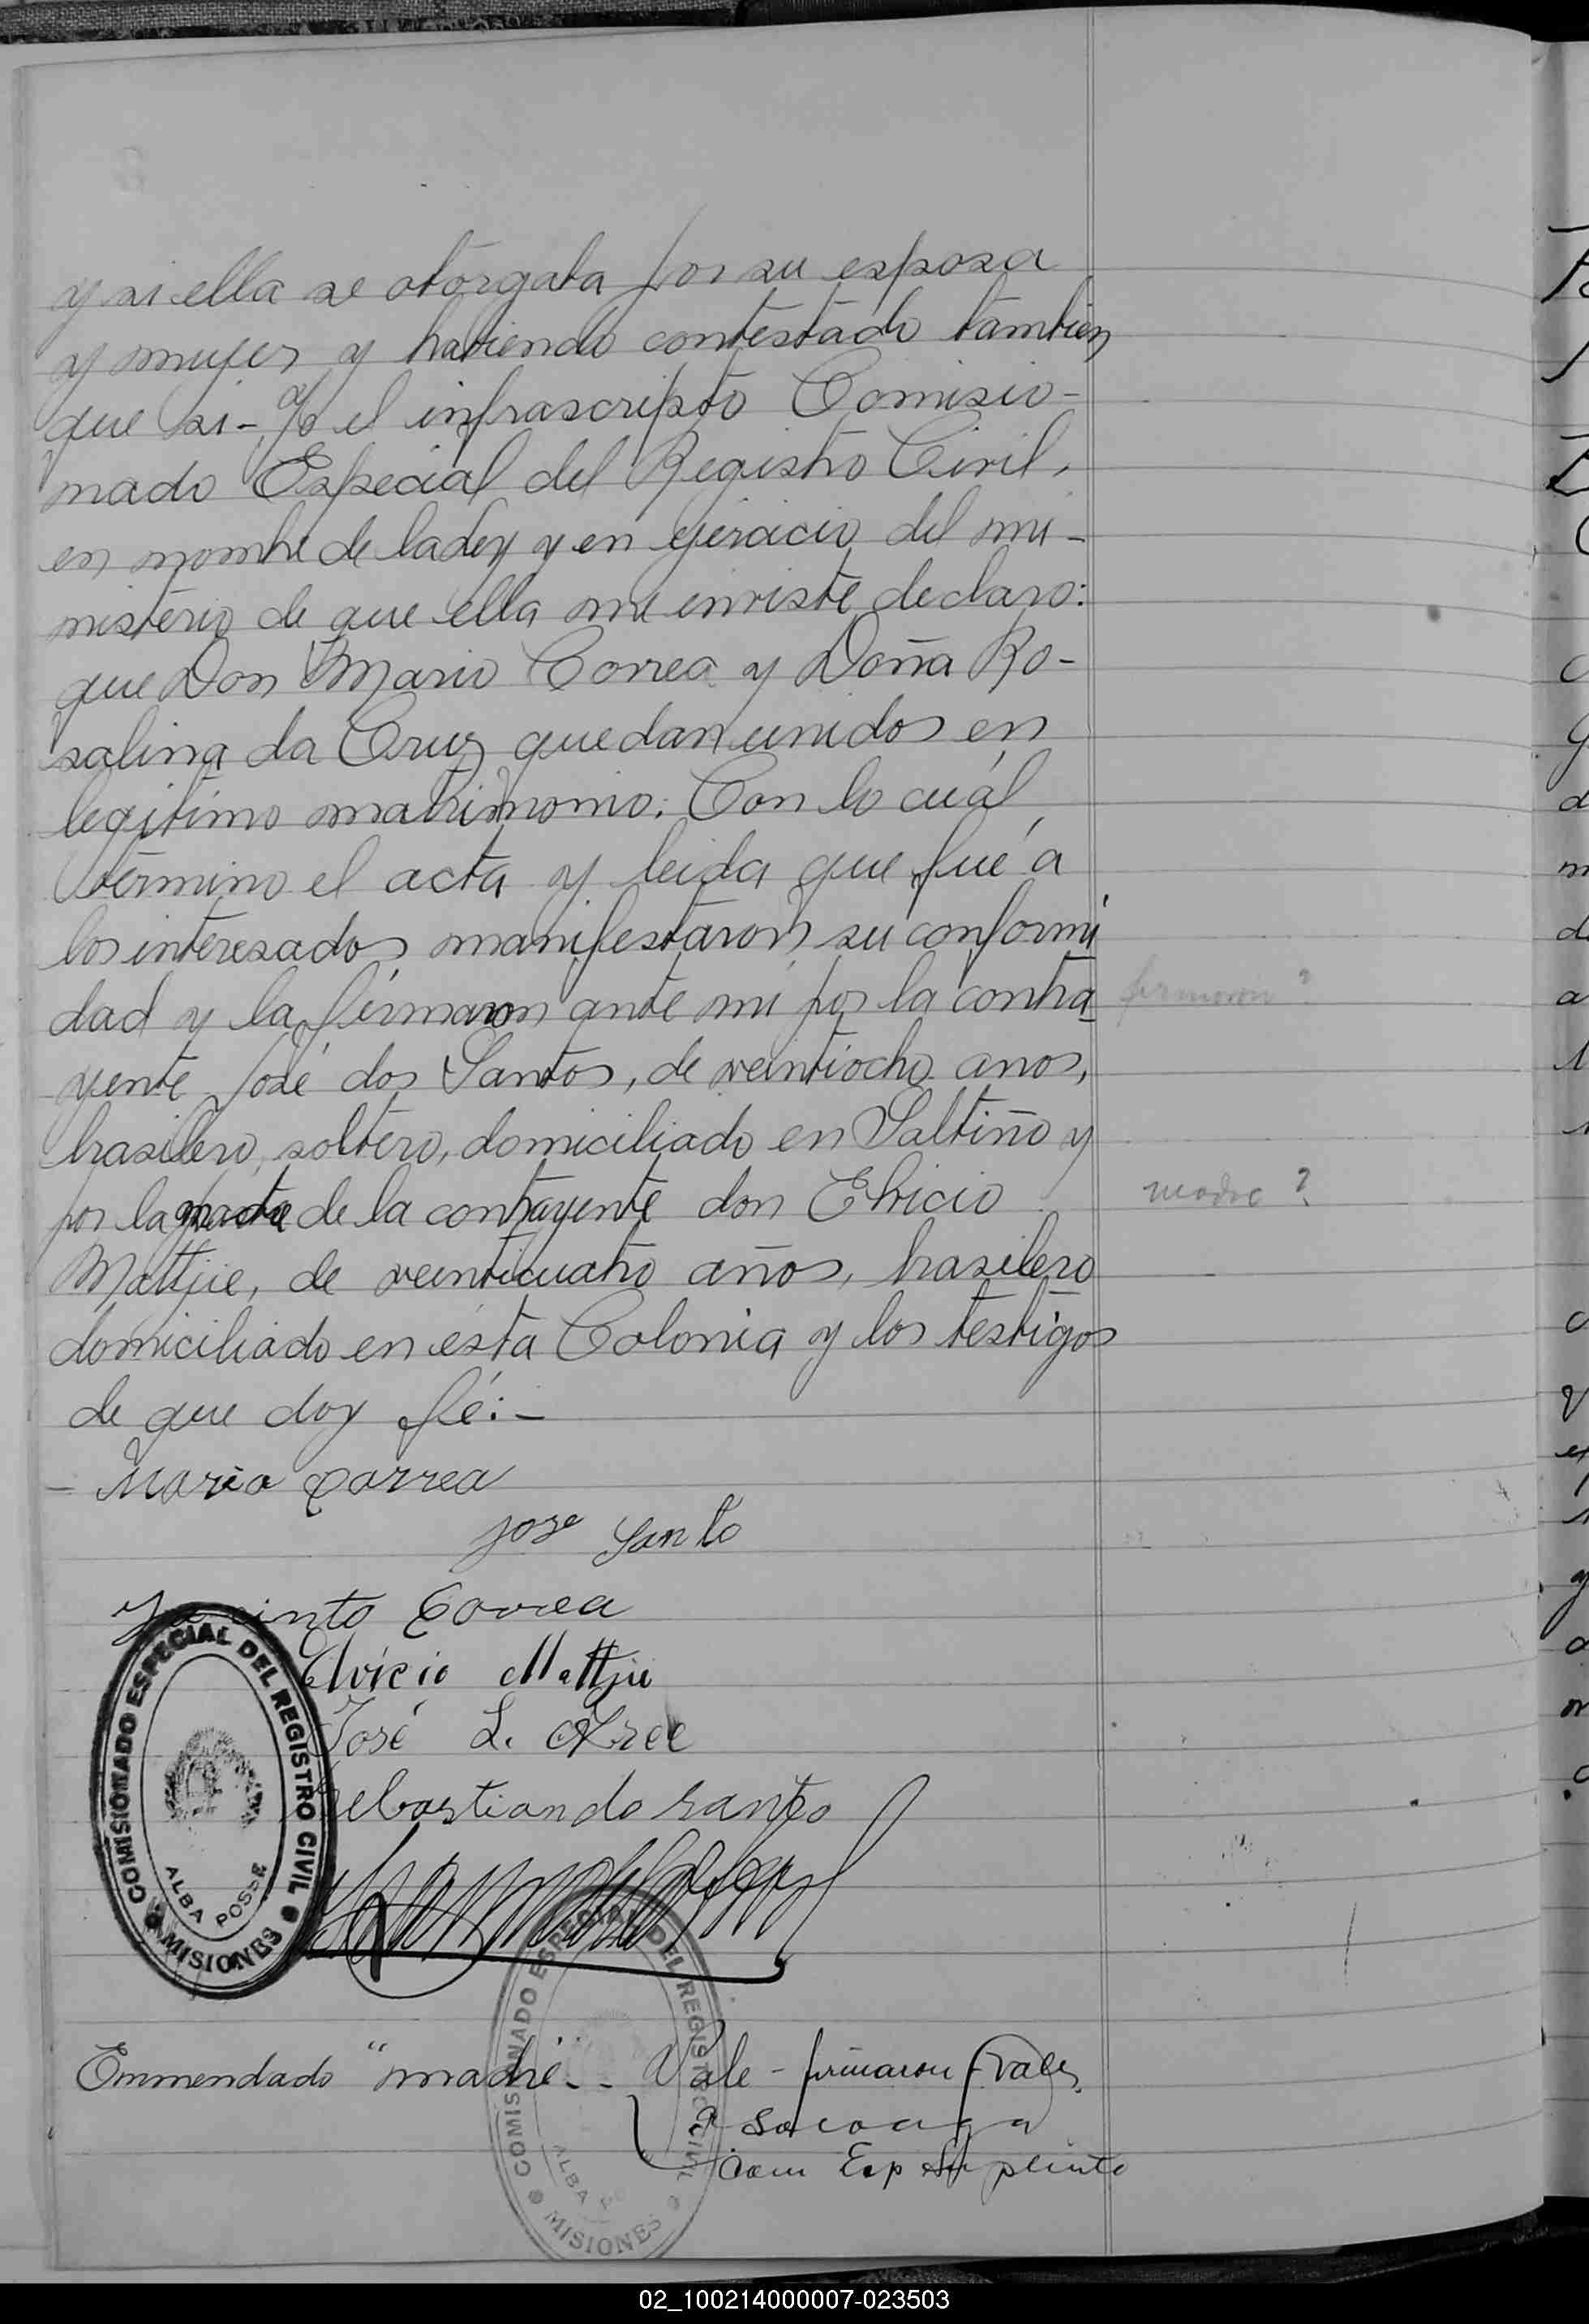 y si ella se otorgaba por su esposa
y mujer y habiendo contestado tambien
que si - Yo el infrascripto Comisio-
nado Especial del Registro Civil,
en nombre de la Ley y en ejercicio del mi-
nisterio de que ella me inviste declaro:
que Don Mario Correa y Doña Ro-
salina da Cruz quedan unidos en
legitimo matrimonio. Con lo cuál
término el acta y leida que fué a
los interesados manifestaron su conformi
dad y la firmaron ante mi por la contra
yente José dos Santos, de veintiocho anos,
brasilero, soltero, domiciliado en Saltiño y
por la madre de la contrayente don Elvicio
Mattjie, de veinticuatro años, brasilero
domiciliado en ésta Colonia y los testigos
de que doy fé:-
firmaron ?
madre ?
- Mario Correa
Jose Santo
Correa
Elvicio Mattjie
José L.
Sebastian do Santo
COMISIONADO ESPECIAL DEL REGISTRO CIVIL
ALBA POSSE
MISIONES
Enmendado "madre" -- Vale - firmaron - Vale
Com Esp Suplente
COMISIONADO ESPECIAL DEL REGISTRO CIVIL
ALBA PO
MISIONES
02_100214000007-023503